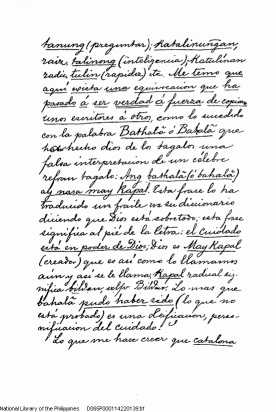 tanung (preguntar); Katalinungan,
raiz, talinong (inteligencia); Katulinan
radiz, tulin (rapida) etc. Me temo que
aqui exista una equivocacion que ha
pasado á ser verdad á fuerza de copiar
unos escritores á otro, como lo sucedido
con la palabra Bathalâ ó Bahalâ que
han hecho dios de los tagalos una
falsa interpretacion de un célebre
refran tagalo: Ang bathalâ (ó bahalâ)
ay nasa may Kapal. Esta frase lo ha
traducido un fraile en su diccionario
diciendo que Dios está sobretodo; esta frase
significa al pié de la letra: el cuidado
está en poder de Dios; Dios es May Kapal
(creador) que es así como lo llamamos
aun y así se le llama; Kapal radical sig
nifica Lo mas que
bahalâ pudo haber sido (lo que no
está probado) es una deificacion, perso-
nificacion del cuidado!
Lo que me hace creer que catalona
National Library of the Philippines D09SP00011422013